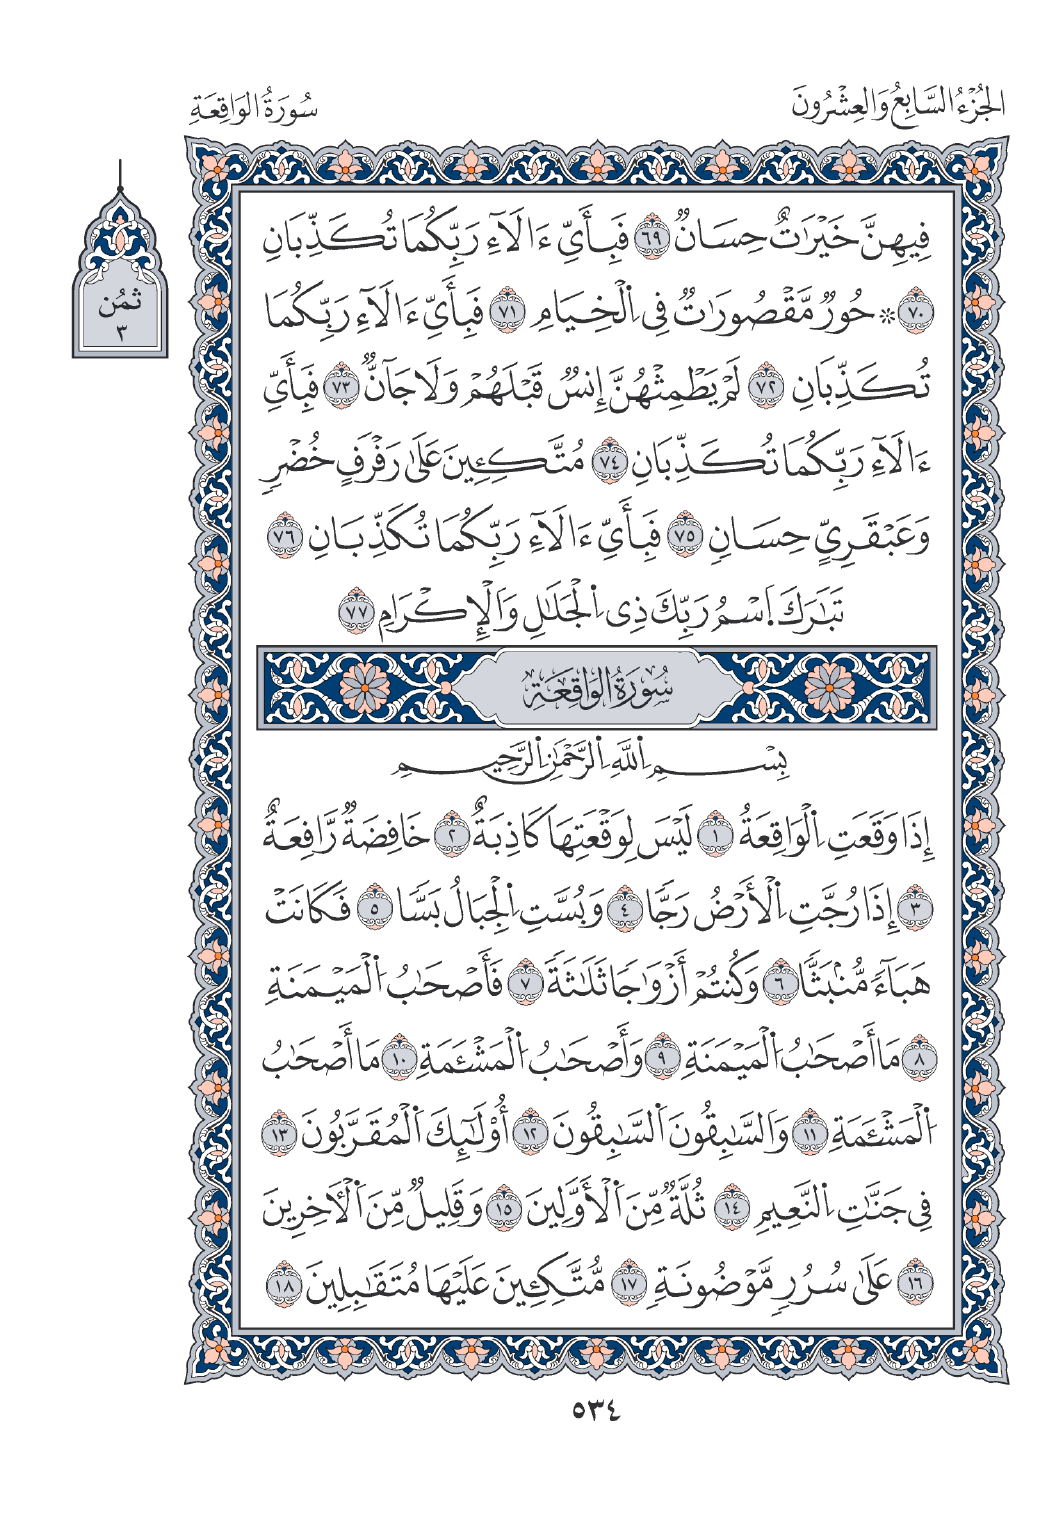 الجُزْءُ السَّابِعُ وَالعِشْرُونَ
سُورَةُ الوَاقِعَةِ
ثمُن
٣
فِيهِنَّ خَيْرَٰتٌ حِسَانٌ ٦٩ فَبِأَيِّ ءَالَآءِ رَبِّكُمَا تُكَذِّبَانِ
٧٠ * حُورٌ مَّقْصُورَٰتٌ فِي اِ۬لْخِيَامِ ٧١ فَبِأَيِّ ءَالَآءِ رَبِّكُمَا
تُكَذِّبَانِ ٧٢ لَمْ يَطْمِثْهُنَّ إِنسٌ قَبْلَهُمْ وَلَا جَآنٌّ ٧٣ فَبِأَيِّ
ءَالَآءِ رَبِّكُمَا تُكَذِّبَانِ ٧٤ مُتَّكِـِٔينَ عَلَىٰ رَفْرَفٍ خُضْرٍ
وَعَبْقَرِيٍّ حِسَانٍ ٧٥ فَبِأَيِّ ءَالَآءِ رَبِّكُمَا تُكَذِّبَانِ ٧٦
تَبَٰرَكَ اَ۪سْمُ رَبِّكَ ذِي اِ۬لْجَلَٰلِ وَالْإِكْرَامِ ٧٧
سُورَةُ الوَاقِعَةِ
بِسْمِ اِ۬للَّهِ اِ۬لرَّحْمَٰنِ اِ۬لرَّحِيمِ
إِذَا وَقَعَتِ اِ۬لْوَاقِعَةُ ١ لَيْسَ لِوَقْعَتِهَا كَاذِبَةٌ ٢ خَافِضَةٌ رَّافِعَةٌ
٣ إِذَا رُجَّتِ اِ۬لْأَرْضُ رَجًّا ٤ وَبُسَّتِ اِ۬لْجِبَالُ بَسًّا ٥ فَكَانَتْ
هَبَآءً مُّنۢبَثًّا ٦ وَكُنتُمْ أَزْوَٰجًا ثَلَٰثَةً ٧ فَأَصْحَٰبُ اُ۬لْمَيْمَنَةِ
٨ مَا أَصْحَٰبُ اُ۬لْمَيْمَنَةِ ٩ وَأَصْحَٰبُ اُ۬لْمَشْـَٔمَةِ ١٠ مَا أَصْحَٰبُ
اُ۬لْمَشْـَٔمَةِ ١١ وَالسَّٰبِقُونَ اَ۬لسَّٰبِقُونَ ١٢ أُوْلَٰٓئِكَ اَ۬لْمُقَرَّبُونَ ١٣
فِي جَنَّٰتِ اِ۬لنَّعِيمِ ١٤ ثُلَّةٌ مِّنَ اَ۬لْأَوَّلِينَ ١٥ وَقَلِيلٌ مِّنَ اَ۬لْأٓخِرِينَ
١٦ عَلَىٰ سُرُرٍ مَّوْضُونَةٍ ١٧ مُّتَّكِـِٔينَ عَلَيْهَا مُتَقَٰبِلِينَ ١٨
٥٣٤